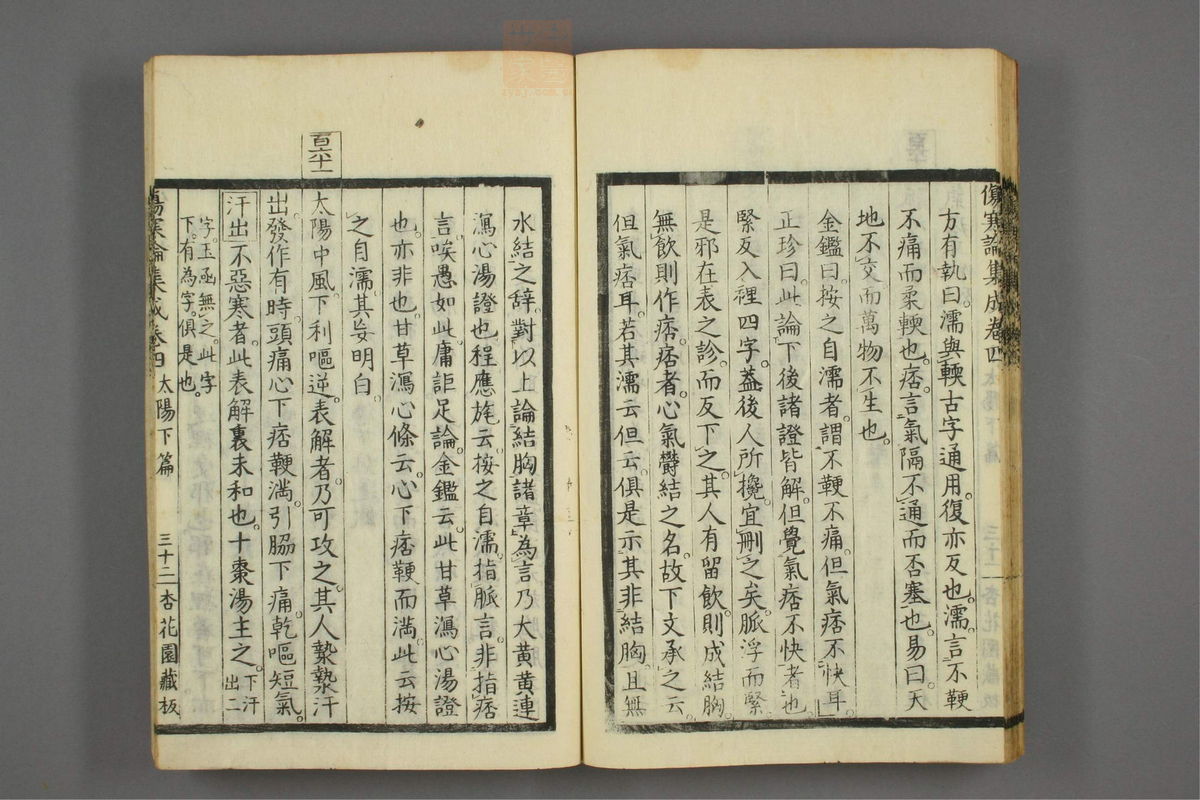 傷寒論集成卷四
方有執曰。濡與輭古字通用。復亦反也。濡言不鞕
不痛而柔輭也。痞言氣隔不通而否塞也。易曰。天
地不交而萬物不生也。
金鑑曰。按之自濡者。謂不鞕不痛。但氣痞不快耳。
正珍曰。此論下後諸證皆解。但覺氣痞不快者也
緊反入裡四字。葢後人所攙。宜刪之矣。脈浮而緊。
是邪在表之診。而反下之。其人有留飲。則成結胸。
無飲則作痞。痞者。心氣欝結之名。故下文承之云。
但氣痞耳。若其濡云但云。俱是示其非結胸。且無
水結之辞。對以上論結胸諸章為言。乃大黃黃連
瀉心湯證也。程應旄云。按之自濡。指脈言。非指痞
言。唉愚如此。庸詎足論。金鑑云。此甘草瀉心湯證
也。亦非也。甘草瀉心條云。心下痞鞕而満。此云按
之自濡。其妄明白。
百六十一
太陽中風。下利嘔逆。表解者。乃可攻之。其人漐漐汗
出。發作有時。頭痛心下痞鞕満。引脇下痛。乾嘔短氣。
汗出不惡寒者。此表解裏未和也。十棗湯主之。下汗出二
字。玉函無之。此字
下。有為字。俱是也。
傷寒論集成卷四 太陽下篇 三十二 杏花園藏板